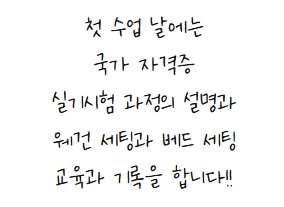 첫 수업 날에는
국가 자격증
실기시험 과정의 설명과
웨건 세팅과 베드 세팅
교육과 기록을 합니다!!